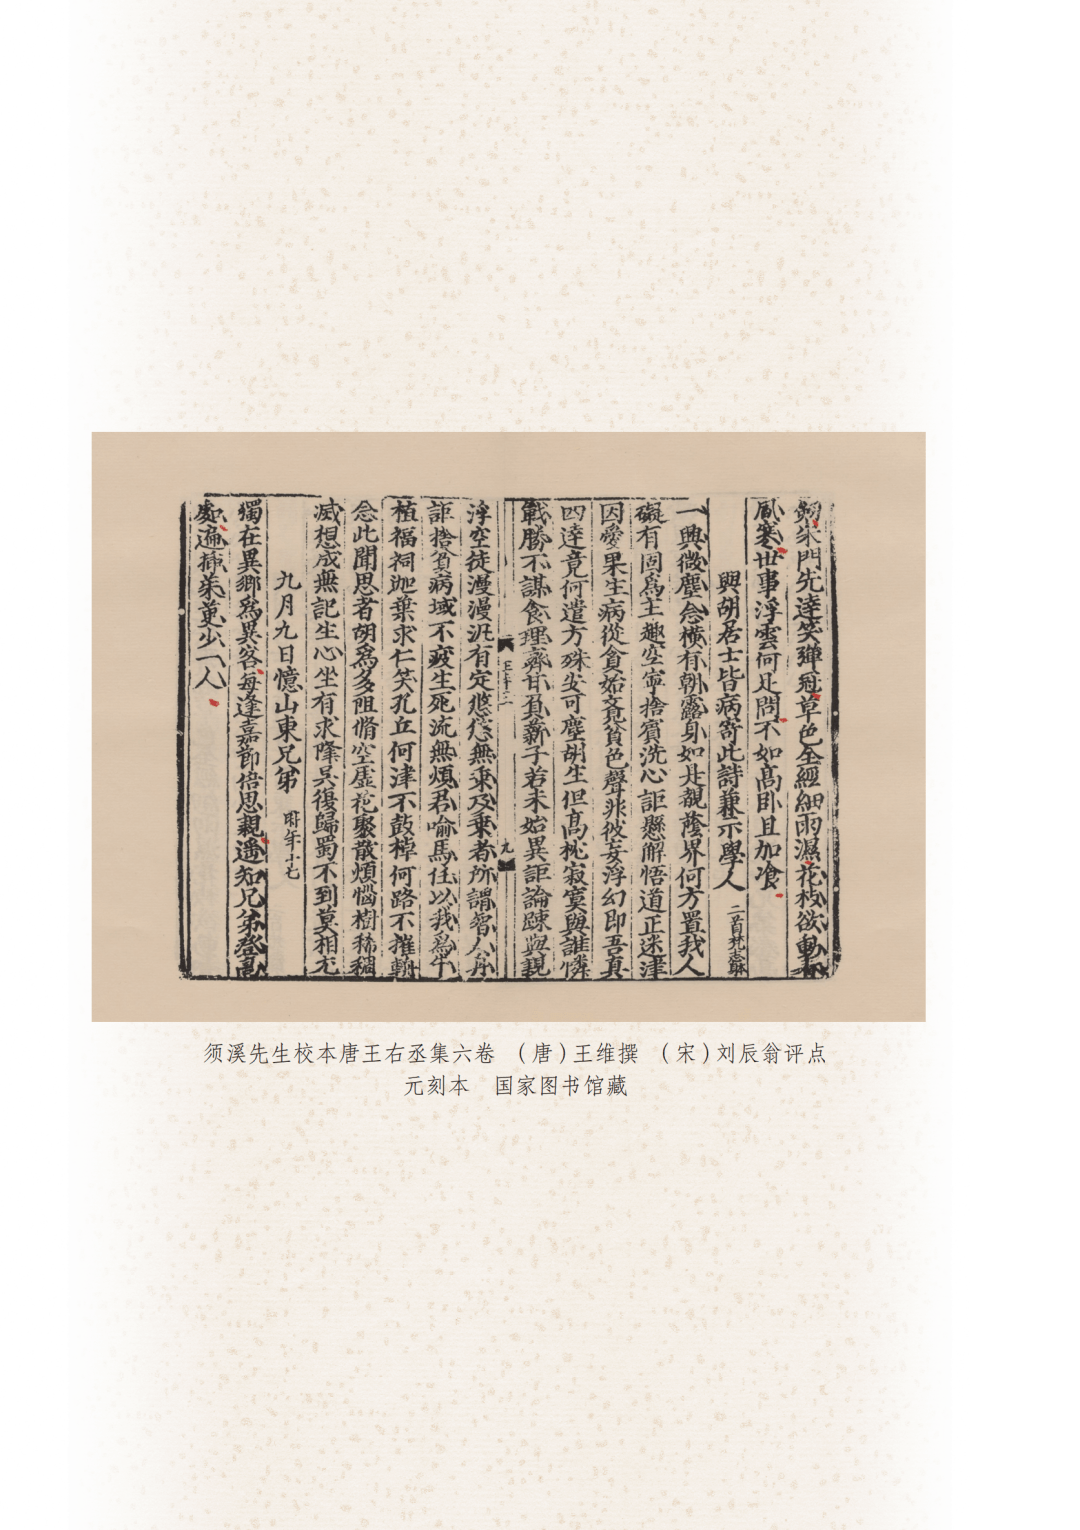 劒朱門先逹笑彈冠草色全經細雨濕花枝欲動春
風寒世事浮雲何足問不如高卧且加飡
與胡居士皆病寄此詩兼示學人 二首梵志體
一興微塵念橫有朝露身如是覩蔭界何方置我人
礙有固爲主趣空寧捨賓洗心詎懸解悟道正迷津
因愛果生病從貪始覔貧色聲非彼妄浮幻即吾真
四逹竟何遣万殊安可塵胡生但高枕寂寞與誰憐
戰勝不謀食理齊甘負薪子若未始異詎論踈與親
王寸二 九
浮空徒漫漫汎有定悠悠無乗及乗者所謂智人舟
詎捨貧病域不疲生死流無煩君喻馬任以我爲牛
植福祠迦葉求仁笑孔丘何津不鼓棹何路不摧輈
念此聞思者胡爲多阻脩空虛花聚散煩惱樹稀稠
滅想成無記生心坐有求降吳復歸蜀不到莫相尤
九月九日憶山東兄弟 時年十七
獨在異鄉爲異客每逢嘉節倍思親遥知兄弟登高
處遍揷茱萸少一人
须溪先生校本唐王右丞集六卷 （唐）王维撰 （宋）刘辰翁评点
元刻本 国家图书馆藏